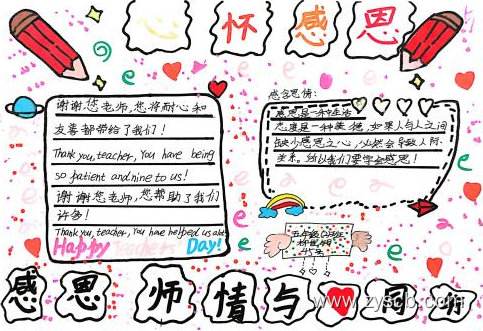 心怀感恩
谢谢您老师,您将耐心和
友善都带给了我们!
Thank you, teacher, You have being
so patient and nine to us!
谢谢您老师,您帮助了我们
许多!
Thank you, Teacher, You have helped us alot
Happy Teachers' Day!
感念恩情:
感恩是一种生活
态度是一种美德,如果人与人之间
缺少感恩之心,必然会导致人际
关系。所以我们要学会感恩!
五年级
感恩师情与爱同萌
www.zyscb.com